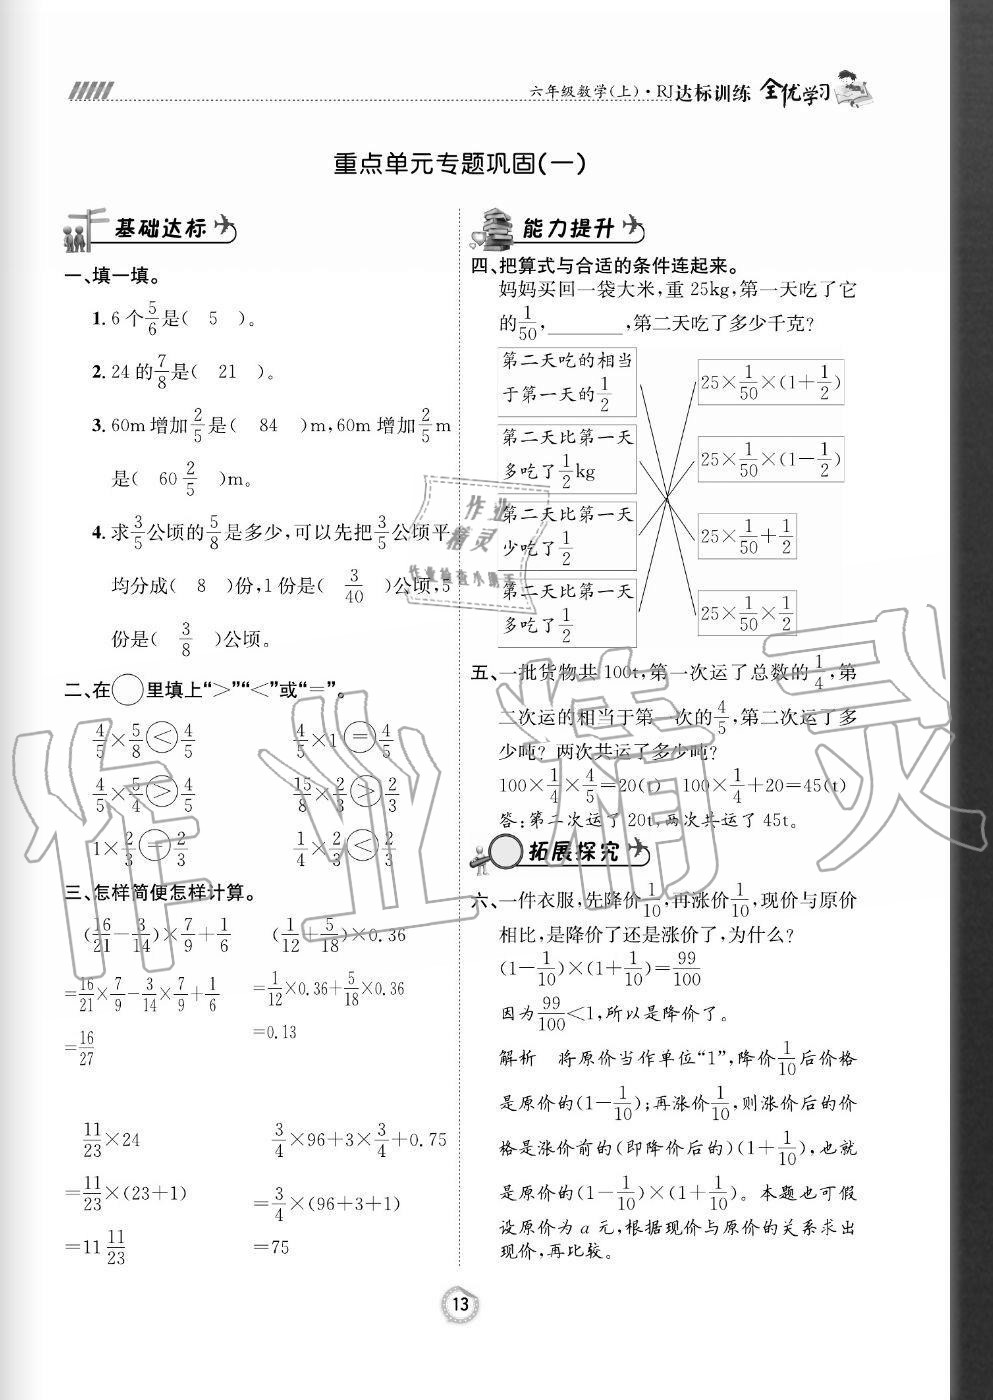 六年级数学(上)·RJ达标训练 全优学习
重点单元专题巩固(一)
基础达标
一、填一填。
1. 6个5/6是( 5 )。
2. 24的7/8是( 21 )。
3. 60m增加2/5是( 84 )m,60m增加2/5m
是( 60 2/5 )m。
4. 求3/5公顷的5/8是多少,可以先把3/5公顷平
均分成( 8 )份,1份是( 3/40 )公顷,5
份是( 3/8 )公顷。
二、在○里填上“>”“<”或“=”。
4/5×5/8<4/5 4/5×1=4/5
4/5×5/4>4/5 15/8×2/3>2/3
1×2/3=2/3 1/4×2/3<2/3
三、怎样简便怎样计算。
(16/21-3/14)×7/9+1/6 (1/12+5/18)×0.36
=16/21×7/9-3/14×7/9+1/6 =1/12×0.36+5/18×0.36
=16/27 =0.13
11/23×24 3/4×96+3×3/4+0.75
=11/23×(23+1) =3/4×(96+3+1)
=11 11/23 =75
能力提升
四、把算式与合适的条件连起来。
妈妈买回一袋大米,重25kg,第一天吃了它
的1/50,______,第二天吃了多少千克?
第二天吃的相当
于第一天的1/2
25×1/50×(1+1/2)
第二天比第一天
多吃了1/2kg
25×1/50×(1-1/2)
第二天比第一天
少吃了1/2
25×1/50+1/2
第二天比第一天
多吃了1/2
25×1/50×1/2
五、一批货物共100t,第一次运了总数的1/4,第
二次运的相当于第一次的4/5,第二次运了多
少吨?两次共运了多少吨?
100×1/4×4/5=20(t) 100×1/4+20=45(t)
答:第二次运了20t,两次共运了45t。
拓展探究
六、一件衣服,先降价1/10,再涨价1/10,现价与原价
相比,是降价了还是涨价了,为什么?
(1-1/10)×(1+1/10)=99/100
因为99/100<1,所以是降价了。
解析 将原价当作单位“1”,降价1/10后价格
是原价的(1-1/10);再涨价1/10,则涨价后的价
格是涨价前的(即降价后的)(1+1/10),也就
是原价的(1-1/10)×(1+1/10)。本题也可假
设原价为a元,根据现价与原价的关系求出
现价,再比较。
13
作业
精灵
作业检查小助手
作业精灵